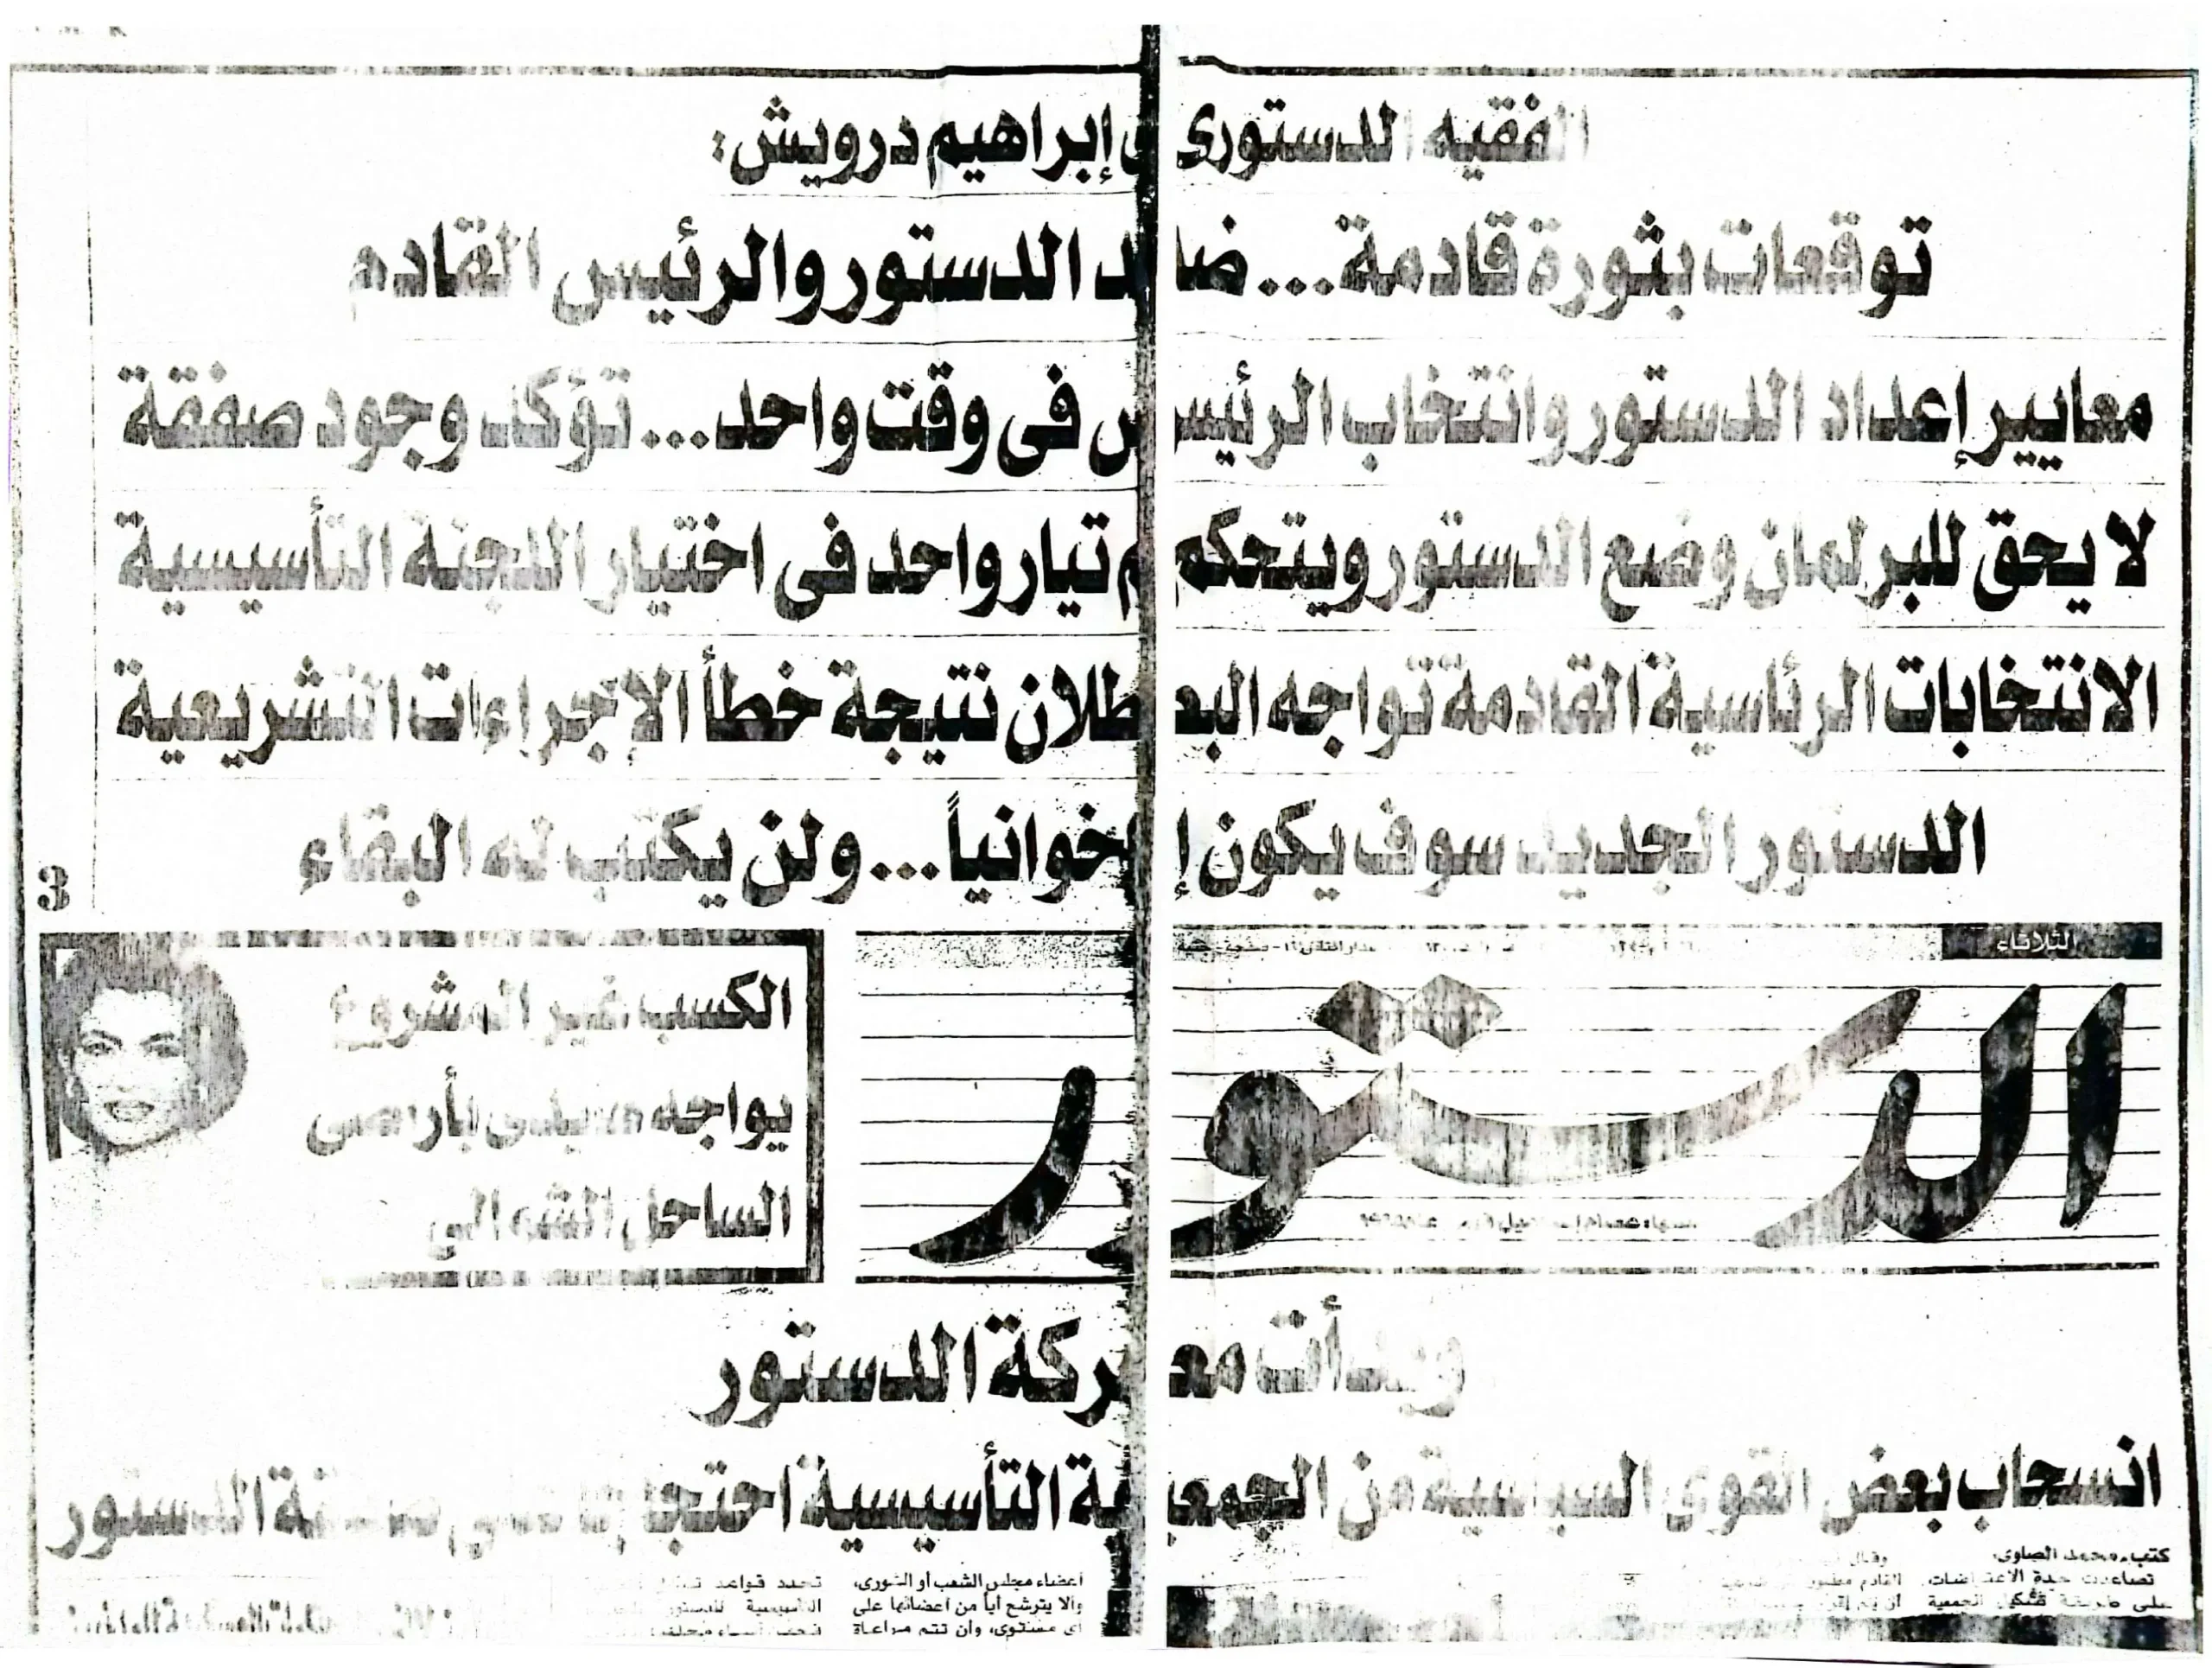 الفقيه الدستورى إبراهيم درويش:
توقعات بثورة قادمة... ضد الدستور والرئيس القادم
معايير إعداد الدستور وانتخاب الرئيس فى وقت واحد... تؤكد وجود صفقة
لا يحق للبرلمان وضع الدستور ويتحكم تيار واحد فى اختيار اللجنة التأسيسية
الانتخابات الرئاسية القادمة تواجه البطلان نتيجة خطأ الإجراءات التشريعية
الدستور الجديد سوف يكون إخوانياً... ولن يكتب له البقاء
الثلاثاء
الدستور
الكسب غير المشروع
يواجه بأراضى
الساحل الشمالى
وبدأت معركة الدستور
انسحاب بعض القوى السياسية من الجمعية التأسيسية احتجاجا الدستور
كتب - محمد الصاوى:
تصاعدت حدة الاعتراضات
على طريقة تشكيل الجمعية
وقال
القادم
أعضاء مجلس الشعب أو الشورى،
وألا يترشح أياً من أعضائها على
أى مستوى، وأن تتم مراعاة
تحدد قواعد
التأسيسية للدستور